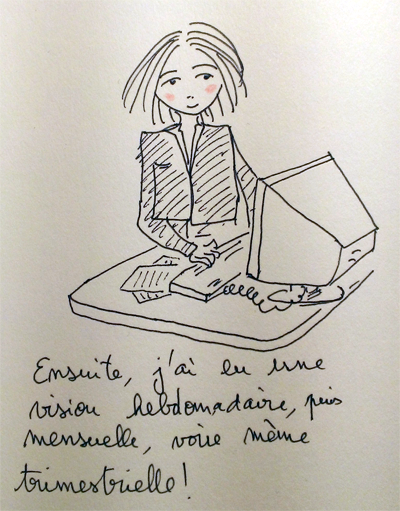 Ensuite, j'ai eu une
vision hebdomadaire, puis
mensuelle, voire même
trimestrielle!